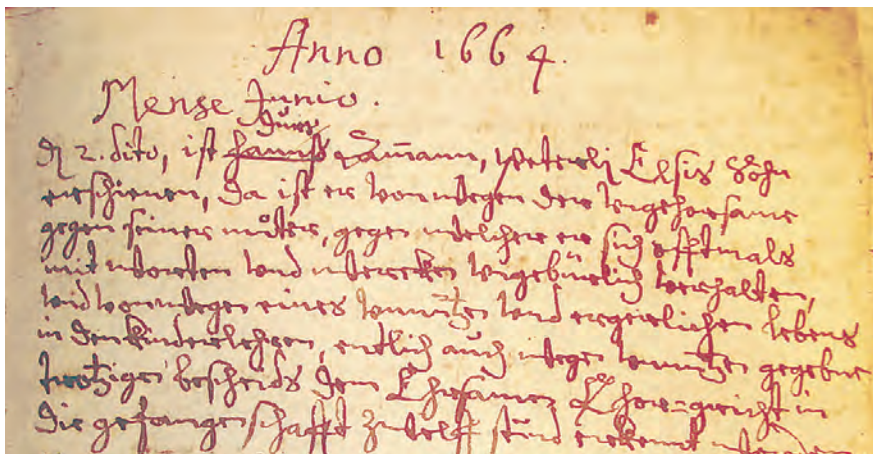 Anno 1664.
Mense Junio.
2. dito, ist hannß Ham̄ann, peterli Elsis Sohn
erschienen, da ist er vonwegen der vngehorsame
gegen seiner můter, gegen welcher er sich offtmals
mit worten vnd wercken vngebürlich verhalten,
vnd vonwegen eines vnnützen vnd ergerlichen lebens
in den kinderlehren, entlich auch wegen vnnützen gegebne
trotzigen bescheids dem Ehrsamen Chorgricht in
die gefangenschafft zwelff stund erkennt worden